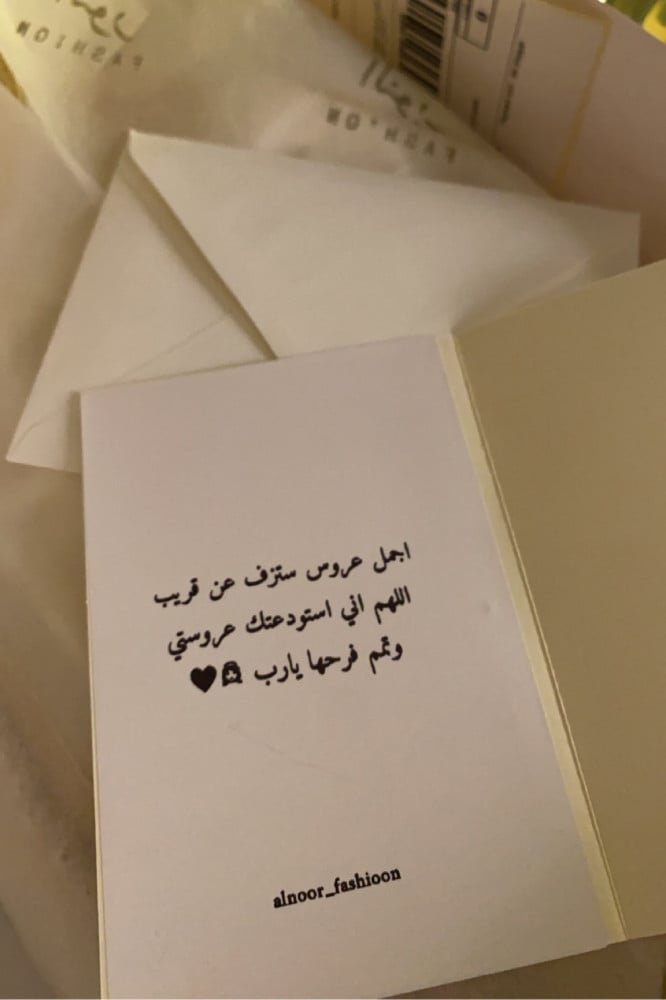 FASHION
FASHION
اجمل عروس ستزف عن قريب
اللهم اني استودعتك عروستي
وتمم فرحها يارب 👰🖤
alnoor_fashioon